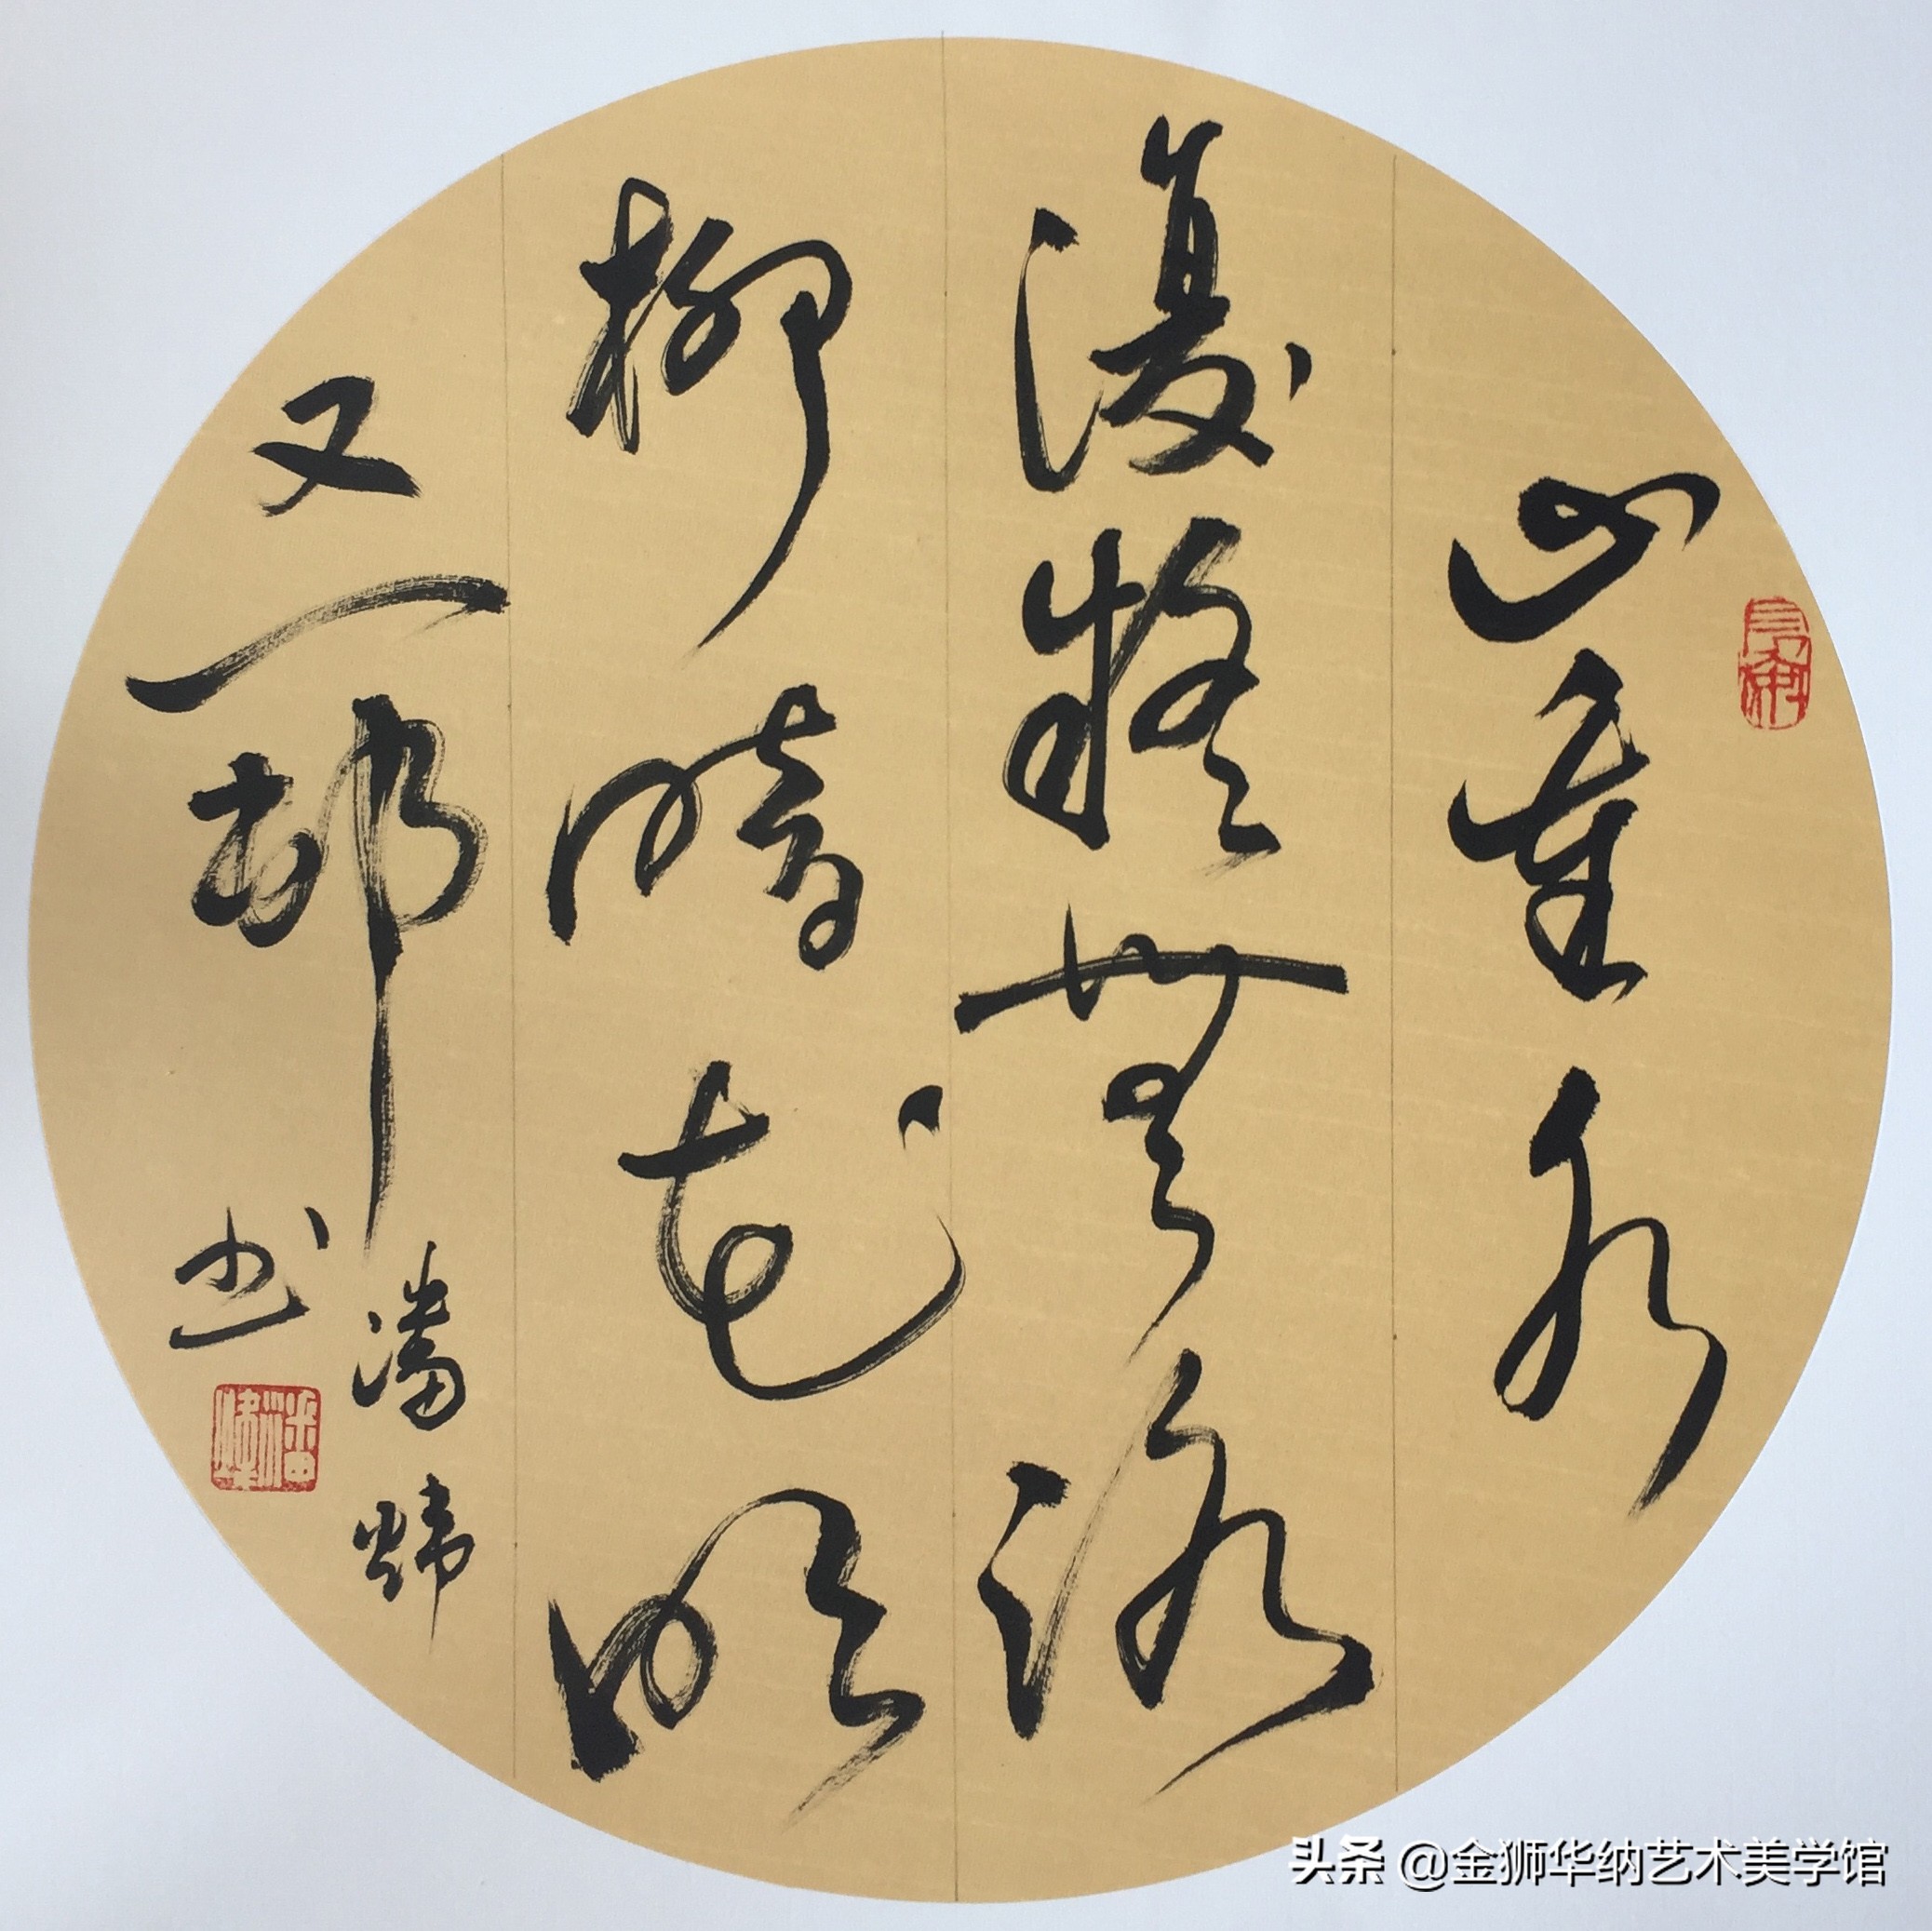 山重水
復疑無路
柳暗花明
又一邨
潘煒
书
潘煒
头条 @金狮华纳艺术美学馆